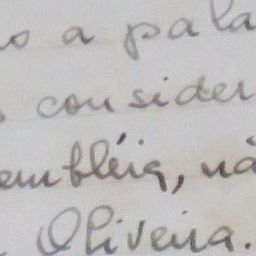 o a pala
consider
embléia, nã
Oliveira.